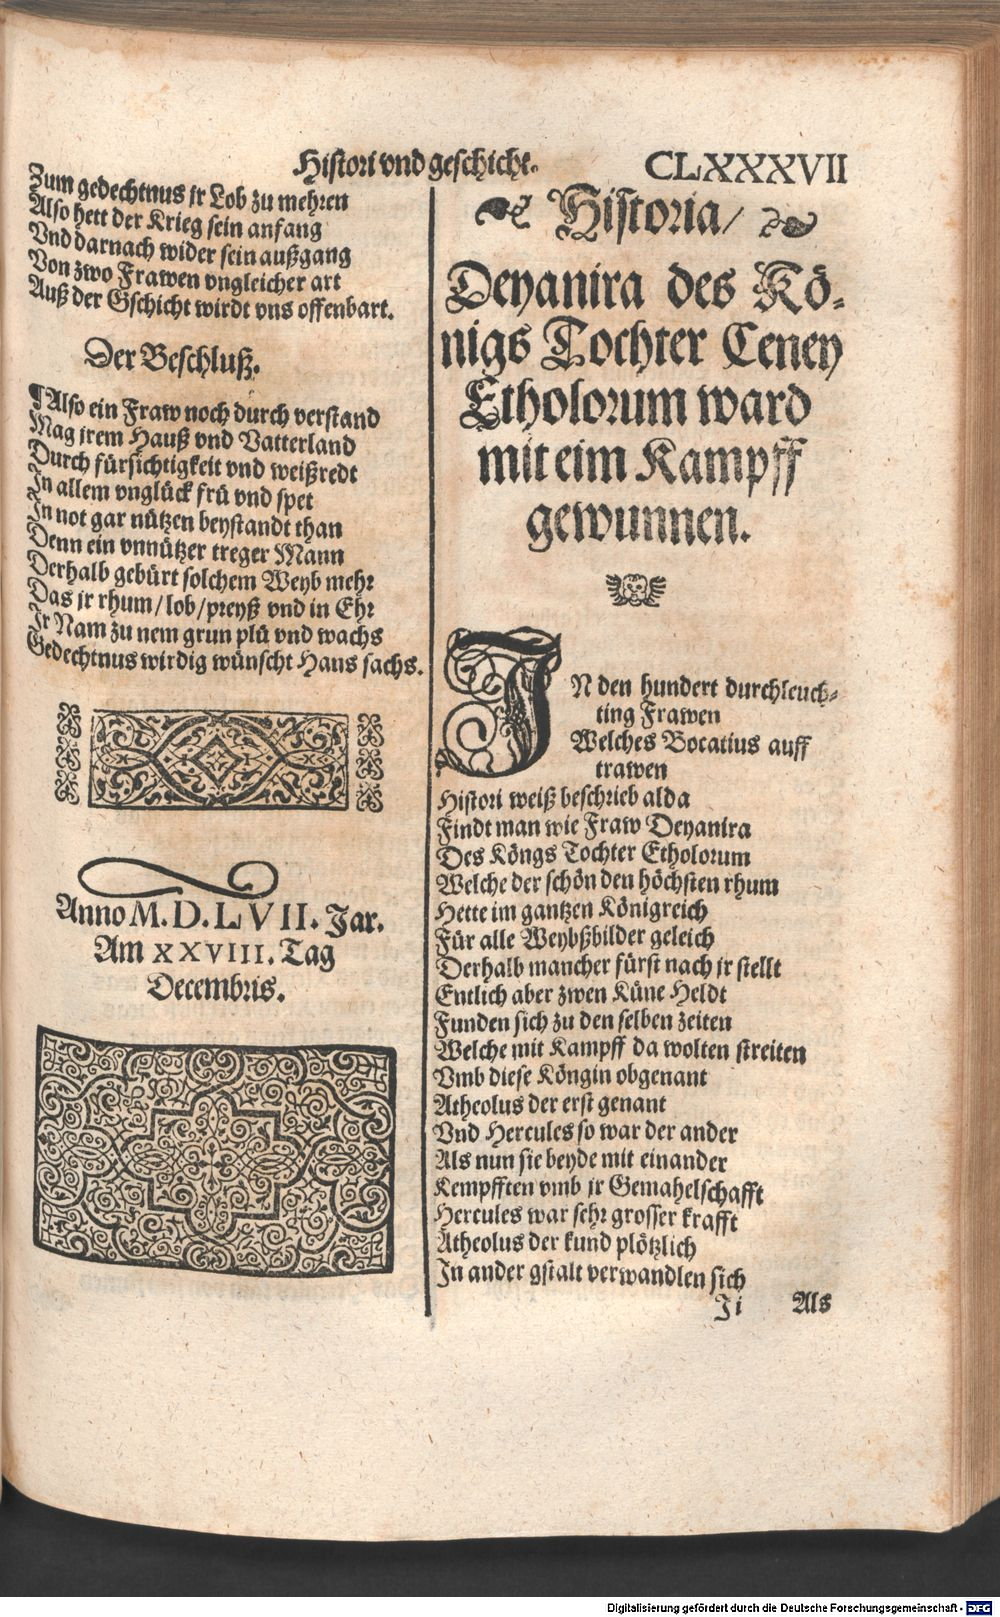 Histori vnd geschicht.
CLXXXVII
Zum gedechtnus jr Lob zu mehren
Also hett der Krieg sein anfang
Vnd darnach wider sein außgang
Von zwo Frawen vngleicher art
Auß der Gschicht wirdt vns offenbart.
Der Beschluß.
¶Also ein Fraw noch durch verstand
Mag jrem Hauß vnd Vatterland
Durch fürsichtigkeit vnd weißredt
In allem vnglück frü vnd spet
In not gar nützen beystandt than
Denn ein vnnützer treger Mann
Derhalb gebürt solchem Weyb mehr
Das jr rhum/lob/preyß vnd in Ehr
Ir Nam zu nem grun plü vnd wachs
Gedechtnus wirdig wünscht Hans sachs.
Anno M.D.LVII. Jar.
Am XXVIII. Tag
Decembris.
Historia/
Deyanira des Kö-
nigs Tochter Ceney
Etholorum ward
mit eim Kampff
gewunnen.
IN den hundert durchleuch-
ting Frawen
Welches Bocatius auff
trawen
Histori weiß beschrieb alda
Findt man wie Fraw Deyanira
Des Köngs Tochter Etholorum
Welche der schön den höchsten rhum
Hette im gantzen Königreich
Für alle Weybßbilder geleich
Derhalb mancher fürst nach jr stellt
Entlich aber zwen Küne Heldt
Funden sich zu den selben zeiten
Welche mit Kampff da wolten streiten
Vmb diese Köngin obgenant
Atheolus der erst genant
Vnd Hercules so war der ander
Als nun sie beyde mit einander
Kempfften vmb jr Gemahelschafft
Hercules war sehr grosser krafft
Atheolus der kund plötzlich
In ander gstalt verwandlen sich
Ji Als
Digitalisierung gefördert durch die Deutsche Forschungsgemeinschaft - DFG